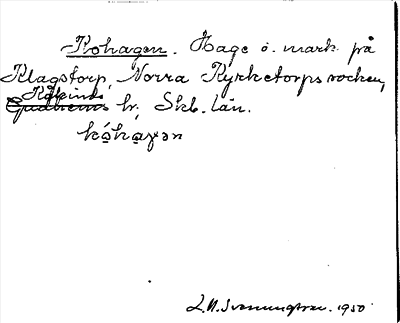 Kohagen. Hage o. mark på
Klagstorp, Norra Kyrketorps socken,
Kåkinds
Gudhems hr, Skb. län.
kóhagən
L. M. Svanungtrae. 1930